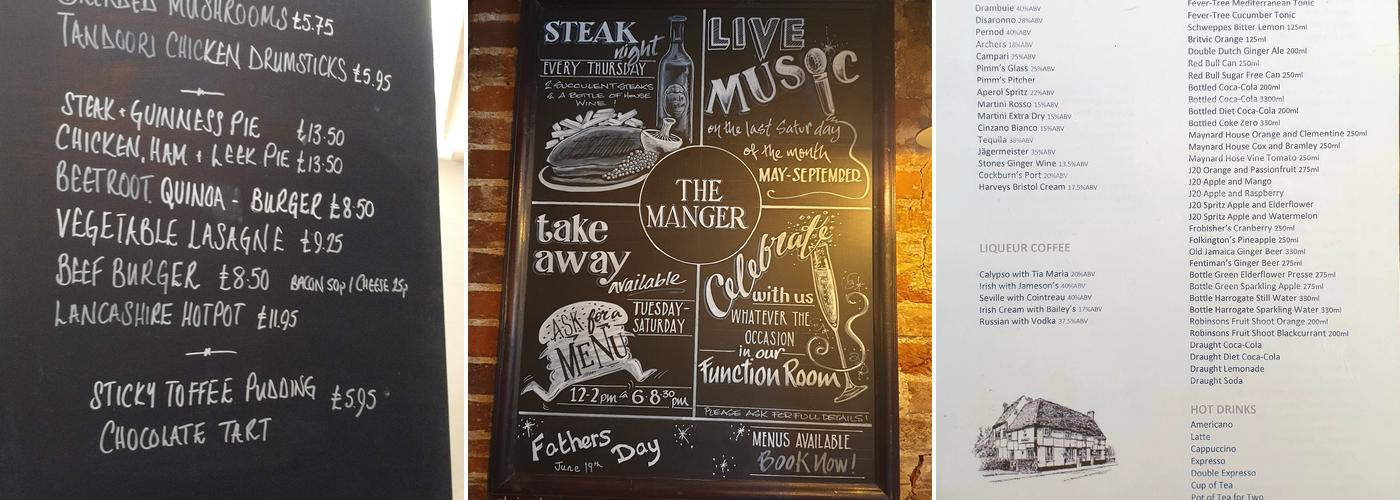 MUSHROOMS £5.75
TANDOORI CHICKEN DRUMSTICKS £5.95
STEAK + GUINNESS PIE £13.50
CHICKEN, HAM + LEEK PIE £13.50
BEETROOT QUINOA - BURGER £8.50
VEGETABLE LASAGNE £9.25
BEEF BURGER £8.50 BACON 50p / CHEESE 25p
LANCASHIRE HOTPOT £11.95
STICKY TOFFEE PUDDING £5.95
CHOCOLATE TART
STEAK
night
EVERY THURSDAY
2 SUCCULENT STEAKS
& A BOTTLE OF HOUSE
WINE!
LIVE
MUSIC
on the last Saturday
of the month
MAY-SEPTEMBER
THE
MANGER
take
away
available
TUESDAY-
SATURDAY
ASK for a
MENU
12-2pm & 6-8:30pm
Celebrate
with us
WHATEVER THE
OCCASION
in our
Function Room
PLEASE ASK FOR FULL DETAILS!
Fathers
Day
June 19th
MENUS AVAILABLE
BOOK NOW!
Drambuie 40%ABV
Disaronno 28%ABV
Pernod 40%ABV
Archers 18%ABV
Campari 25%ABV
Pimm's Glass 25%ABV
Pimm's Pitcher
Aperol Spritz 22%ABV
Martini Rosso 15%ABV
Martini Extra Dry 15%ABV
Cinzano Bianco 15%ABV
Tequila 38%ABV
Jägermeister 35%ABV
Stones Ginger Wine 13.5%ABV
Cockburn's Port 20%ABV
Harveys Bristol Cream 17.5%ABV
LIQUEUR COFFEE
Calypso with Tia Maria 20%ABV
Irish with Jameson's 40%ABV
Seville with Cointreau 40%ABV
Irish Cream with Bailey's 17%ABV
Russian with Vodka 37.5%ABV
Fever-Tree Mediterranean Tonic
Fever-Tree Cucumber Tonic
Schweppes Bitter Lemon 125ml
Britvic Orange 125ml
Double Dutch Ginger Ale 200ml
Red Bull Can 250ml
Red Bull Sugar Free Can 250ml
Bottled Coca-Cola 200ml
Bottled Coca-Cola 3300ml
Bottled Diet Coca-Cola 200ml
Bottled Coke Zero 330ml
Maynard House Orange and Clementine 250ml
Maynard House Cox and Bramley 250ml
Maynard Hose Vine Tomato 250ml
J20 Orange and Passionfruit 275ml
J20 Apple and Mango
J20 Apple and Raspberry
J20 Spritz Apple and Elderflower
J20 Spritz Apple and Watermelon
Frobisher's Cranberry 250ml
Folkington's Pineapple 250ml
Old Jamaica Ginger Beer 330ml
Fentiman's Ginger Beer 275ml
Bottle Green Elderflower Presse 275ml
Bottle Green Sparkling Apple 275ml
Bottle Harrogate Still Water 330ml
Bottle Harrogate Sparkling Water 330ml
Robinsons Fruit Shoot Orange 200ml
Robinsons Fruit Shoot Blackcurrant 200ml
Draught Coca-Cola
Draught Diet Coca-Cola
Draught Lemonade
Draught Soda
HOT DRINKS
Americano
Latte
Cappuccino
Expresso
Double Expresso
Cup of Tea
Pot of Tea for Two